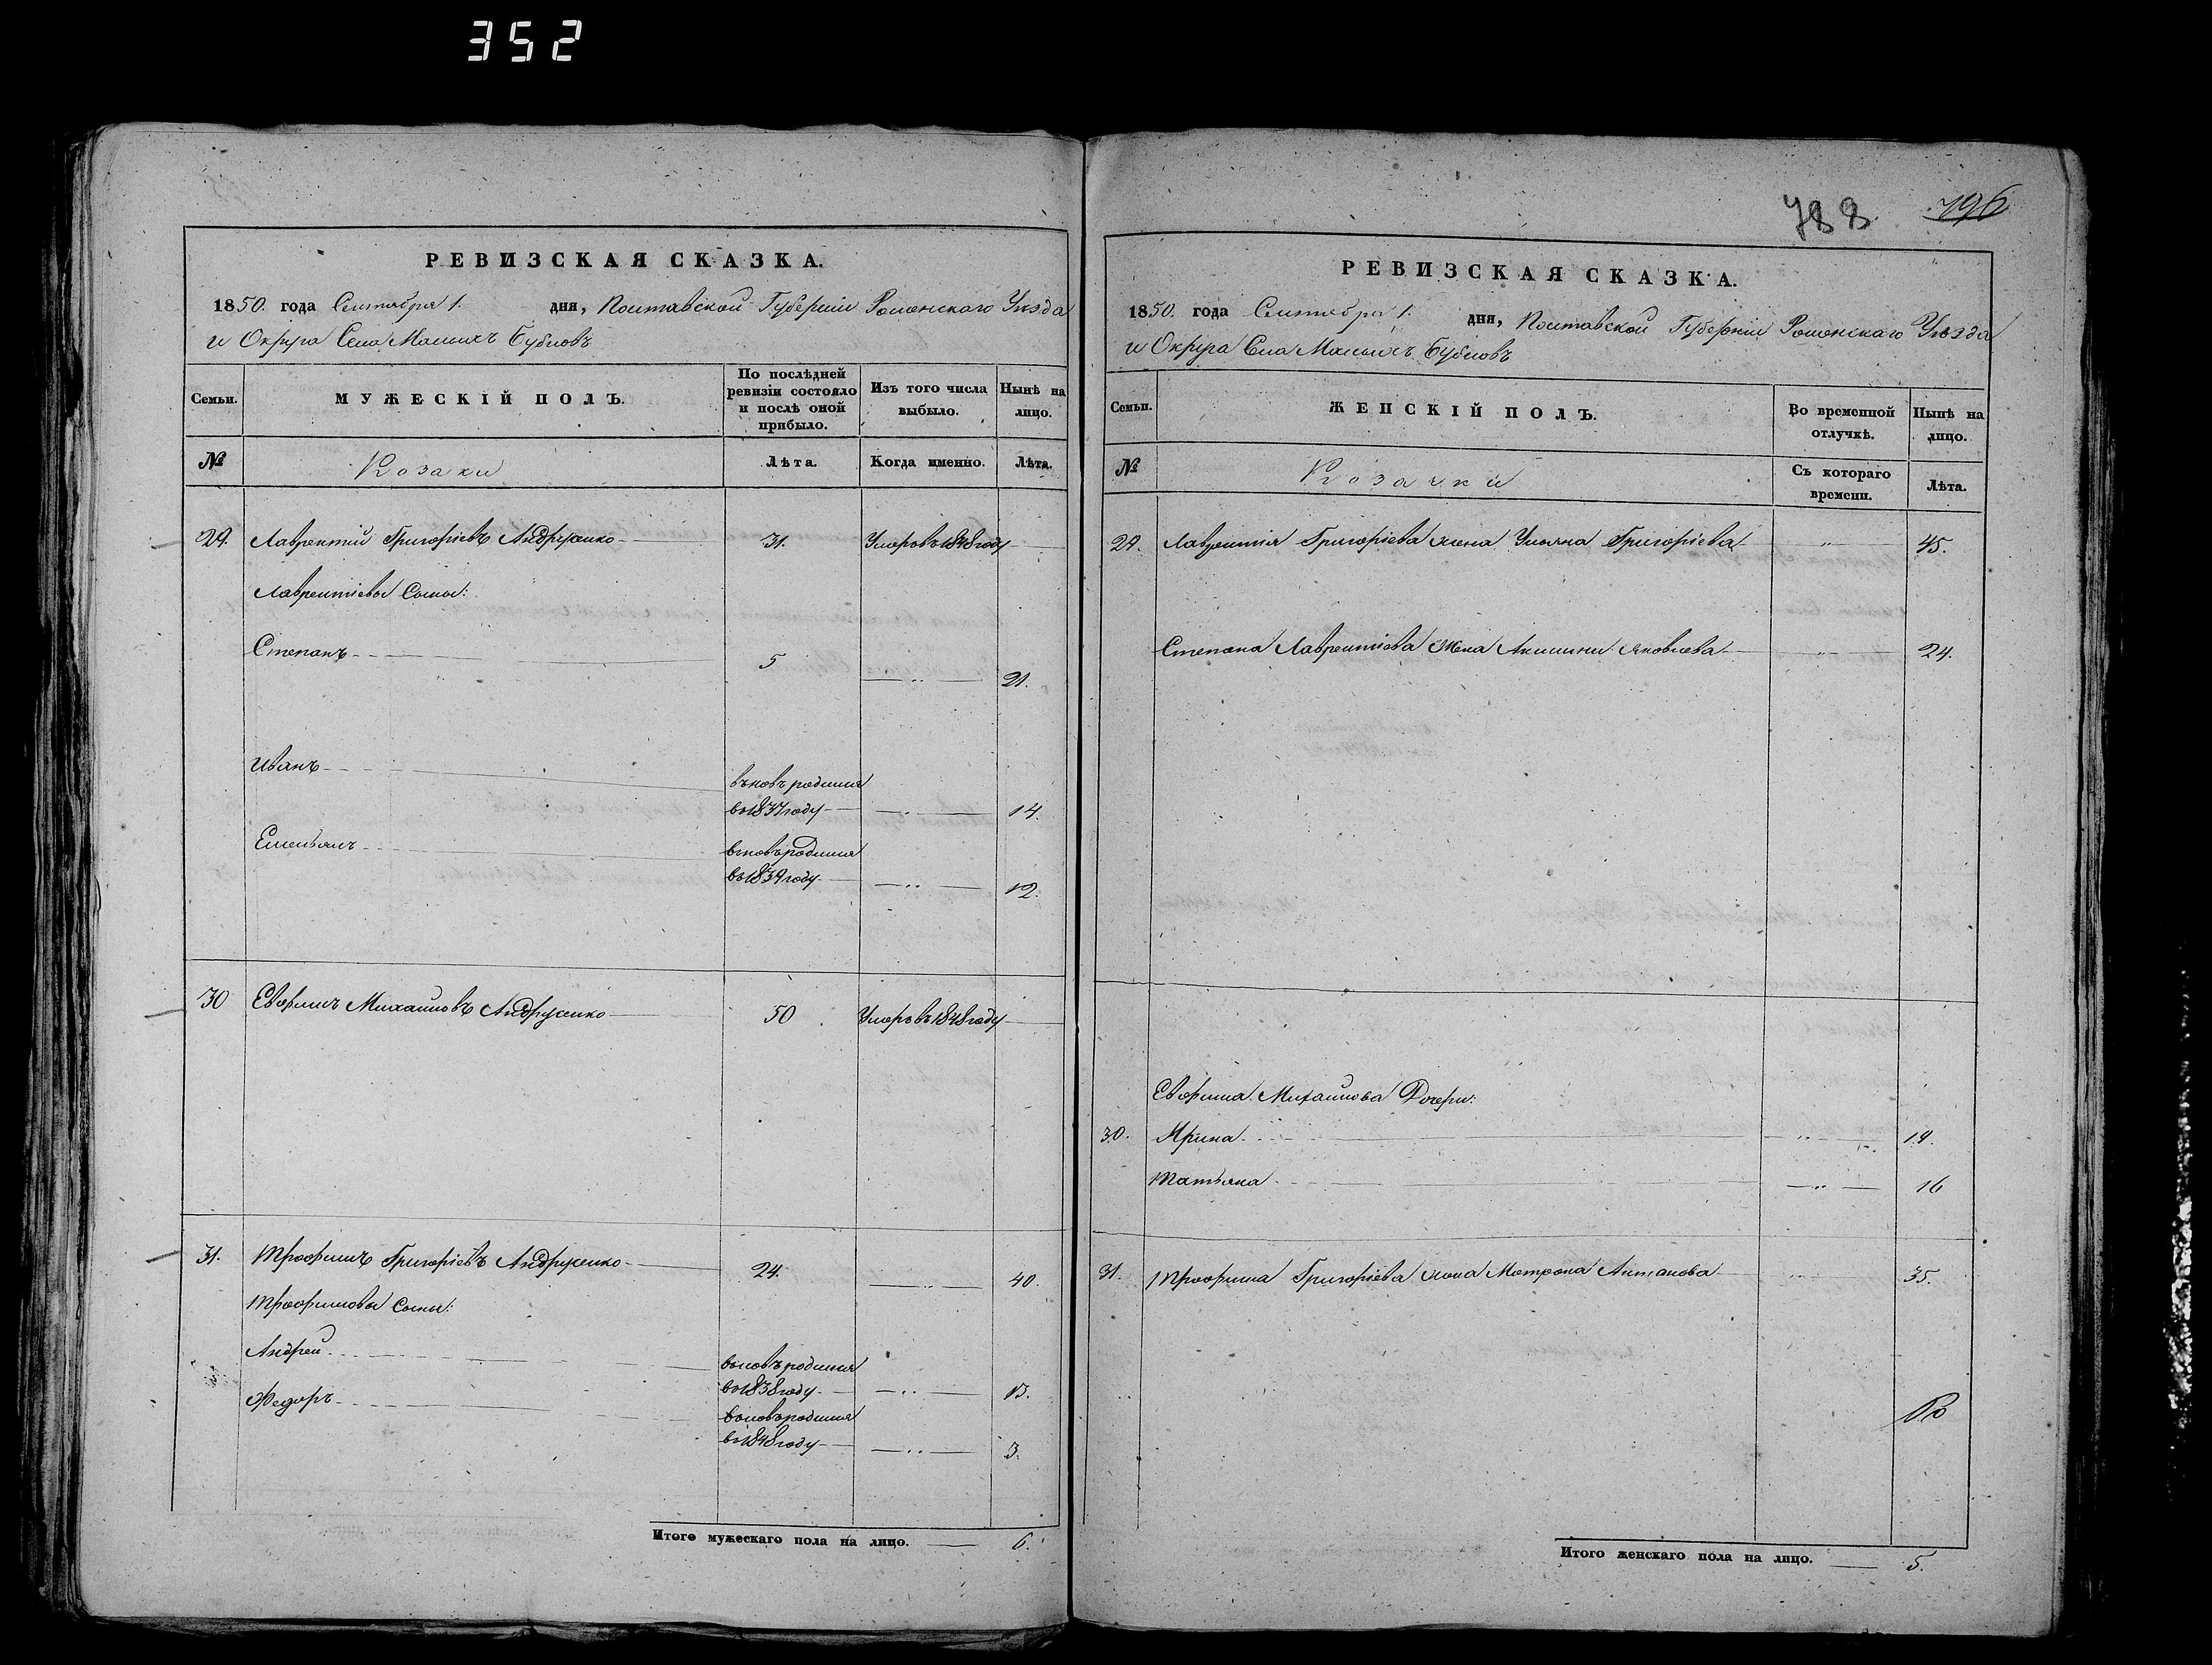 352
788. 796
РЕВИЗСКАЯ СКАЗКА.
1850. года Сентября 1. дня, Полтавской Губерніи Роменскаго Уѣзда
и Округа Села Малыхъ Бубновъ
Семьи.
МУЖЕСКІЙ ПОЛЪ.
По послѣдней ревизіи состояло и послѣ оной прибыло.
Изъ того числа выбыло.
Нынѣ на лицо.
№ Козаки Лѣта. Когда именно. Лѣта.
29. Лаврентий Григоріевъ Андрусенко 31. Умеръ въ 1848 году
Лаврентіевы Сыны:
Степанъ 5 — " — 21.
Иванъ вновь родился
во 1837 году — " — 14.
Емельянъ вновь родился
во 1839 году — " — 12.
30 Евфимъ Михайловъ Андрусенко 50 Умеръ въ 1848 году
31. Трофимъ Григоріевъ Андрусенко 24. — " — 40.
Трофимовы Сыны:
Андрей вновь родился
во 1838 году — " — 13.
Федоръ вновь родился
во 1848 году — " — 3.
Итого мужескаго пола на лицо. — 6.
РЕВИЗСКАЯ СКАЗКА.
1850. года Сентября 1. дня, Полтавской Губерніи Роменскаго Уѣзда
и Округа Села Малыхъ Бубновъ
Семьи.
ЖЕНСКІЙ ПОЛЪ.
Во временной отлучкѣ.
Нынѣ на лицо.
№ Козачки Съ котораго времени. Лѣта.
29. Лаврентія Григоріева жена Ульяна Григоріева " 45.
Степана Лаврентіева жена Акилина Яковлева — " — 24.
Евфима Михайлова Дочери:
30. Ирина — " — 19.
Татьяна — " — 16
31. Трофима Григоріева жена Матрона " 35.
Итого женскаго пола на лицо. — 5.